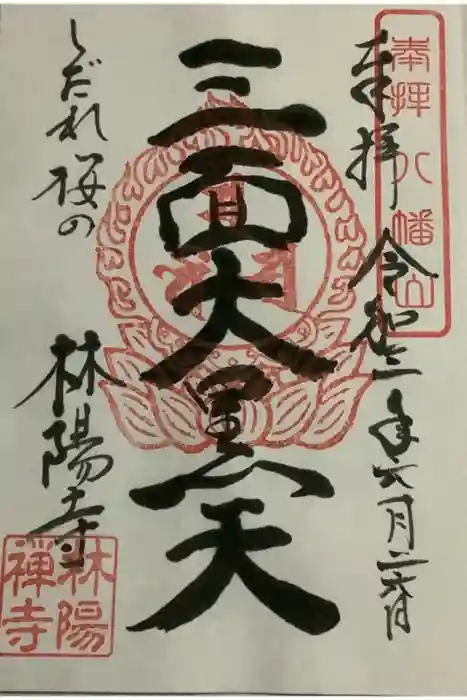 奉拝 令和三年六月二六日
奉拝 八幡山
三面大黒天
しだれ桜の
林陽寺
林陽
禅寺